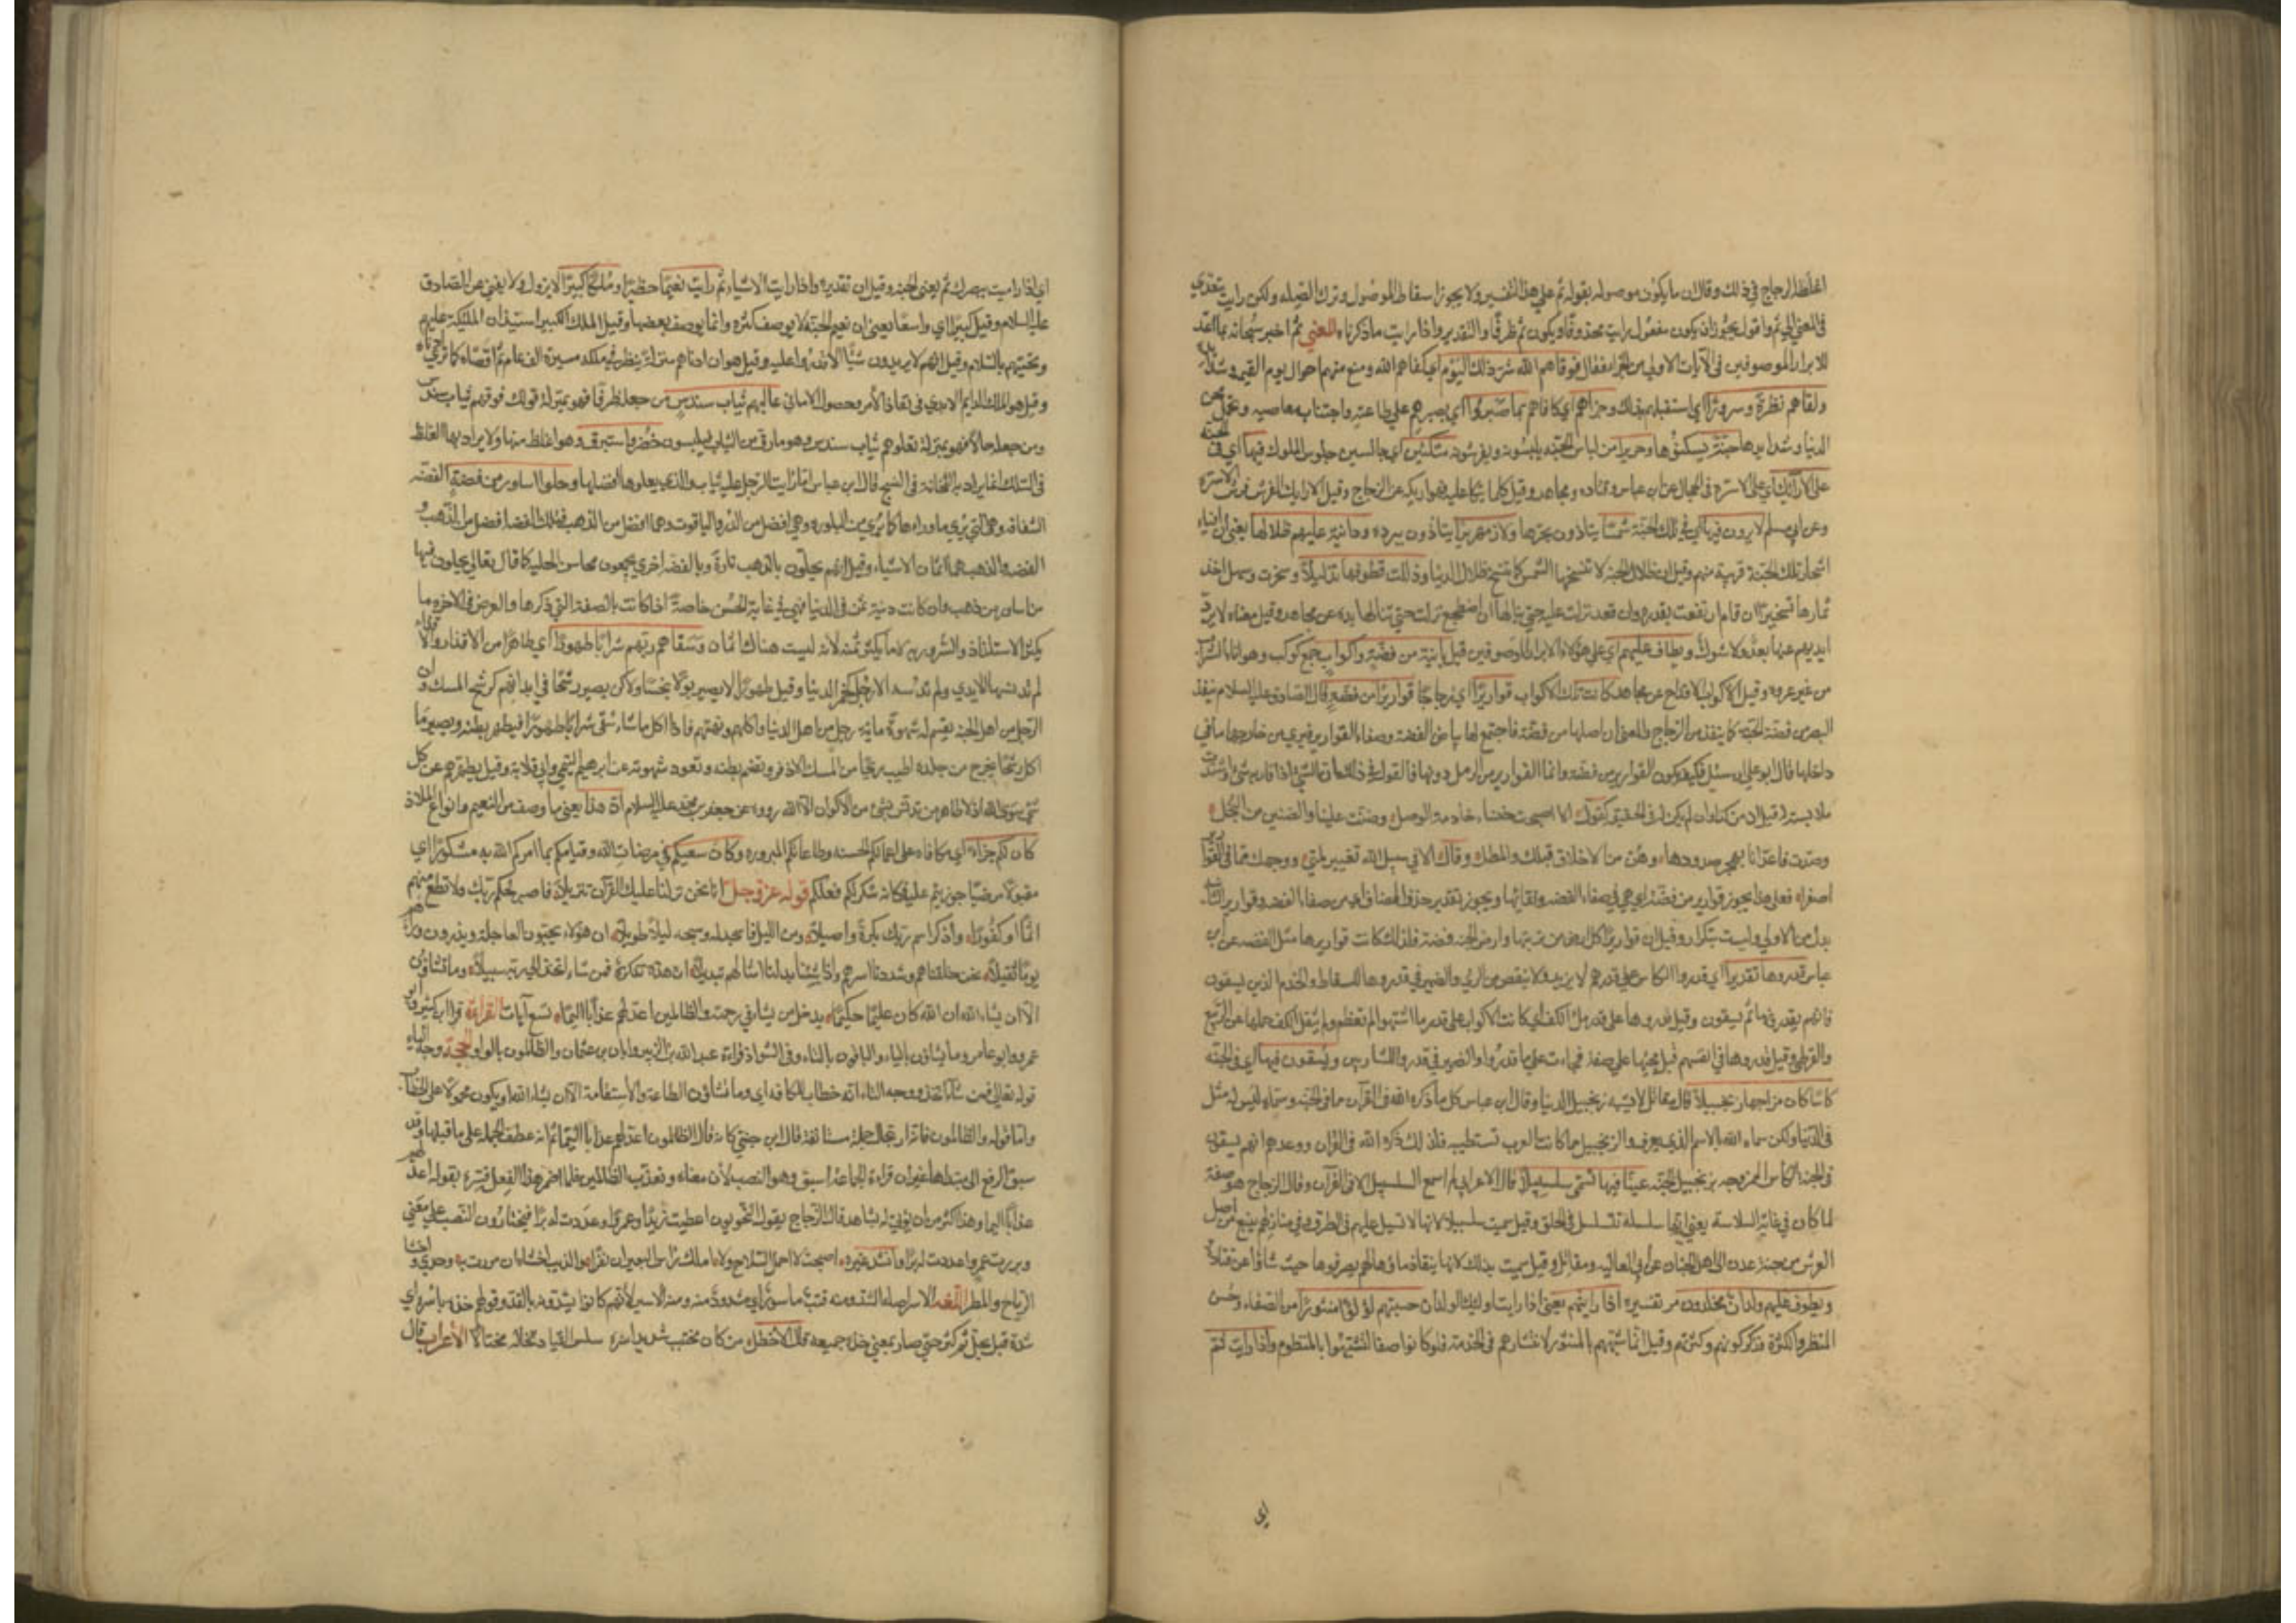 اغلظ الزجاج في ذلك وقال ان ما يكون موصوله بقوله ثم علي هذا التفسير ولا يجوز اسقاط الموصول وترك الصله ولكن رايت يتعدي
في المعني الي ثم واقول يجوز ان يكون مفعول رايت محذوفا ويكون ثم ظرفا والتقدير واذا رايت ما ذكرناه المعني ثم اخبر سبحانه بما اعد
للابرار الموصوفين في الآيات الاولي من فقال فوقاهم الله شر ذلك اليوم اي كفاهم الله ومنع منهم اهوال يوم القيمه وشدائده
ولقاهم نضرة وسرورا اي استقبلهم بذلك وجزاهم اي كافاهم بما صبروا اي بصبرهم علي طاعته واجتناب معاصيه وتحمل محن
الدنيا وشدايدها جنة يسكنونها وحريرا من لباس الجنه يلبسونه ويفرشونه متكئين اي جالسين جلوس الملوك فيها اي في الجنه
علي الارآئك اي علي الاسره في الحجال عن ابن عباس وقتاده ومجاهد وقيل كلما يتكا عليه فهو اريكه عن الزجاج وقيل الارايك الفرش فوق الاسره
وعن ابي مسلم لا يرون فيها اي في تلك الجنة شمسا يتاذون بحرها ولا زمهريرا يتاذون ببرده ودانية عليهم ظلالها يعني ان افياء
اشجار تلك الجنة قريبة منهم وقيل ان ظلال الجنة لا تنسخها الشمس كما تنسخ ظلال الدنيا وذللت قطوفها تذليلا وسخرت وسهل اخذ
ثمارها تسخيرا ان قام ارتفعت بقدره وان قعد نزلت عليه حتي ينالها وان اضطجع نزلت حتي ينالها يده عن مجاهد وقيل معناه لا يرد
ايديهم عنها بعد ولا شوك ويطاف عليهم اي علي هؤلاء الابرار الموصوفين قبل بآنية من فضة واكواب جمع كوب وهو اناء الشراب
من غير عروه وقيل الاكواب الاقداح عن مجاهد كانت تلك الاكواب قواريرا اي زجاجا قواريرا من فضه قال الصادق عليه السلام ينفذ
البصر من فضة الجنة كما ينفذ من الزجاج والمعني ان اصلها من فضة فاجتمع لها بياض الفضة وصفاء القوارير فيري من خارجها ما في
داخلها قال ابو علي ان سئل فكيف يكون القوارير من فضه وانما القوارير من الرمل دونها فالقول في ذلك ان الشئ اذا قاربه شئ واشتدت
ملابسته له قيل انه من كذا وان لم يكن له في الحقيقه كقول الا اصبحت خنساء خاذمة الوصل وضنت علينا والضنين من البخل
وصدت فاعدانا بهجر صدودها وهن من الاخلاف قبلك والمطل وقال الا في سبيل الله تغيير لمتي ووجهك مما في القوارير
اصفرا فعلي هذا يجوز قوارير من فضة اي هي في صفاء الفضه ونقائها ويجوز تقدير حذف المضاف اي من صفاء الفضه وقوارير الثانيه
بدل من الاولي وليست بتكرار وقيل ان قوارير كل ارض من تربتها وارض الجنه فضة فلذلك كانت قواريرها مثل الفضه عن ابن
عباس قدروها تقديرا اي قدروا الكاس علي قدر ريهم لا يزيد ولا ينقص من الري والضمير في قدروها للسقاط والخدم الذين يسقون
فانهم يقدرونها ثم يسقون وقيل قدروها علي قدر ملأ الكف اي كانت الاكواب علي قدر ما اشتهوا لم تعظم ولم يثقل الكف حملها عن الربيع
والقرظي وقيل قدروها في انفسهم قبل مجيئها علي صفة فجاءت علي ما قدروا والضمير في قدروا للشاربين ويسقون فيها اي في الجنه
كاسا كان مزاجها زنجبيلا قال مقاتل لا يشبه زنجبيل الدنيا وقال ابن عباس كل ما ذكره الله في القرآن مما في الجنه وسماه ليس له مثل
في الدنيا ولكن سماه الله بالاسم الذي يعرف والزنجبيل مما كانت العرب تستطيبه فلذلك ذكره الله في القرآن ووعدهم انهم يسقون
في الجنة الكاس الممزوجه بزنجبيل الجنه عينا فيها تسمي سلسبيلا قال ابن الاعرابي لم اسمع السلسبيل الا في القرآن وقال الزجاج هو صفة
لما كان في غاية السلاسة يعني انها سلسله تتسلسل في الحلق وقيل سميت سلسبيلا لانها تسيل عليهم في الطرق وفي منازلهم ينبع من اصل
العرش من جنة عدن الي اهل الجنان عن ابي العاليه ومقاتل وقيل سميت بذلك لانها ينقاد ماؤها لهم يصرفوها حيث شاؤا عن قتادة
ويطوف عليهم ولدان مخلدون مر تفسيره اذا رايتهم يعني اذا رايت اولئك الولدان حسبتهم لؤلؤا منثورا من الصفاء وحسن
المنظر والكثرة فذكر لونهم وكثرتهم وقيل انما شبههم بالمنثور لانتشارهم في الخدمة فلو كانوا صفا لشبهوا بالمنظوم واذا رايت ثم
اي
اي اذا رايت ببصرك ثم يعني الجنه وقيل ان تقديره واذا رايت الاشياء ثم رايت نعيما خطيرا وملكا كبيرا لا يزول ولا يفني عن الصادق
عليه السلام وقيل كبيرا اي واسعا يعني ان نعيم الجنة لا يوصف كثره وانما يوصف بعضها وقيل الملك الكبير استيذان الملئكة عليهم
وتحيتهم بالسلام وقيل انهم لا يريدون شيئا الا قدروا عليه وقيل هو ان ادناهم منزلة ينظر في ملكه مسيرة الف عام يري اقصاه كما يري ادناه
وقيل هو الملك الدايم الابدي في نفاذ الأمر وحصول الاماني عاليهم ثياب سندس من جعله ظرفا فهو بمنزلة قولك فوقهم ثياب سندس
ومن جعله حالا فهو بمنزلة تعلوهم ثياب سندس وهو ما رق من الثياب فيلبسون خضر واستبرق وهو ما غلظ منها ولا يراد به الغلظ
في السلك انما يراد به الثخانة في النسج قال ابن عباس اما رايت الرجل عليه ثياب والذي يعلوها افضلها وحلوا اساور من فضة الفضه
الشفافه وهي التي يري ما وراءها كما يري من البلوره وهي افضل من الدر والياقوت وهما افضل من الذهب فتلك الفضه افضل من الذهب و
الفضه والذهب هما اثمان الاشياء وقيل انهم يحلون بالذهب تارة وبالفضه اخري ليجمعون محاسن الحليه كما قال تعالي يحلون فيها
من اساور من ذهب وان كانت دنية ثمن في الدنيا فهي في غاية الحسن خاصة اذا كانت بالصفة التي ذكرها والغرض في الاخره ما
يكثر الاستلذاذ والسرور به لا ما يكثر ثمنه لانه ليست هناك اثمان وسقاهم ربهم شرابا طهورا اي طاهرا من الاقذار والاقذاء
لم تدنسها الايدي ولم تدسه الارجل كخمر الدنيا وقيل طهورا لا يصير بولا نجسا ولكن يصير رشحا في ابدانهم كرشح المسك وان
الرجل من اهل الجنه يقسم له شهوة مايه رجل من اهل الدنيا واكلهم ونهمتهم فاذا اكل ما شاء سقي شرابا طهورا فيطهر بطنه ويصير ما
اكل رشحا يخرج من جلده اطيب ريحا من المسك الاذفر ويضمر بطنه وتعود شهوته عن ابراهيم التيمي وابي قلابة وقيل يطهرهم عن كل
شئ سوي الله اذ لا طاهر من تدنس بشئ من الاكوان الا الله رووه عن جعفر بن محمد عليه السلام ان هذا يعني ما وصف من النعيم وانواع الملاذ
كان لكم جزاء اي مكافاه علي اعمالكم الحسنه وطاعاتكم المبروره وكان سعيكم في مرضات الله وقيامكم بما امركم الله به مشكورا اي
مقبولا مرضيا جوزيتم عليه فكانه شكر لكم فعلكم قوله عز وجل انا نحن نزلنا عليك القرآن تنزيلا فاصبر لحكم ربك ولا تطع منهم
اثما او كفورا واذكر اسم ربك بكرة واصيلا ومن الليل فاسجد له وسبحه ليلا طويلا ان هؤلاء يحبون العاجلة ويذرون وراءهم
يوما ثقيلا نحن خلقناهم وشددنا اسرهم واذا شئنا بدلنا امثالهم تبديلا ان هذه تذكرة فمن شاء اتخذ الي ربه سبيلا وما تشاؤن
الا ان يشاء الله ان الله كان عليما حكيما يدخل من يشاء في رحمته والظالمين اعد لهم عذابا اليما تسع آيات القراءة قرا ابن كثير وابن
عمر وابو عامر وما يشاؤن بالياء والباقون بالتاء وفي الشواذ قراءة عبد الله بن الزبير وابان بن عثمان والظالمون بالواو الحجة وجه الياء
قوله تعالي فمن شاء اتخذ ووجه التاء انه خطاب للكافه اي وما تشاؤن الطاعة والاستقامة الا ان يشاء الله او يكون محمولا علي الخطاب
واما قوله والظالمون فانه ارتجال جملة مستانفة قال ابن جني كانه قال الظالمون اعد لهم عذابا اليما ثم انه عطف الجمله علي ما قبلها وقد
سبق الرفع الي مبتداها غير ان قراءة الجماعة اسبق وهو النصب لأن معناه ويعذب الظالمين فلما اضمر هذا الفعل فسره بقوله اعد لهم
عذابا اليما وهذا اكثر من ان يؤتي له بشاهد قال الزجاج يقول النحويون اعطيت زيدا وعمرا اعددت له برا فيختارون النصب علي معني
وبررت عمرا واعددت له برا وانشد غيره اصبحت لا احمل السلاح ولا املك راس البعير ان نفرا والذيب اخشاه ان مررت به وحدي واخشا
الرياح والمطرا اللغه الاسر اصله الشد ومنه قتب ماسور اي مشدود ومنه الاسير لأنهم كانوا يشدونه بالقد وقولهم خذ باسره اي
شده قبل يحل ثم كثر حتي صار بمعني خذ جميعه قال الاخطل من كان مجتنب شديد اسره سلس القياد تخاله مختالا الأعراب قال